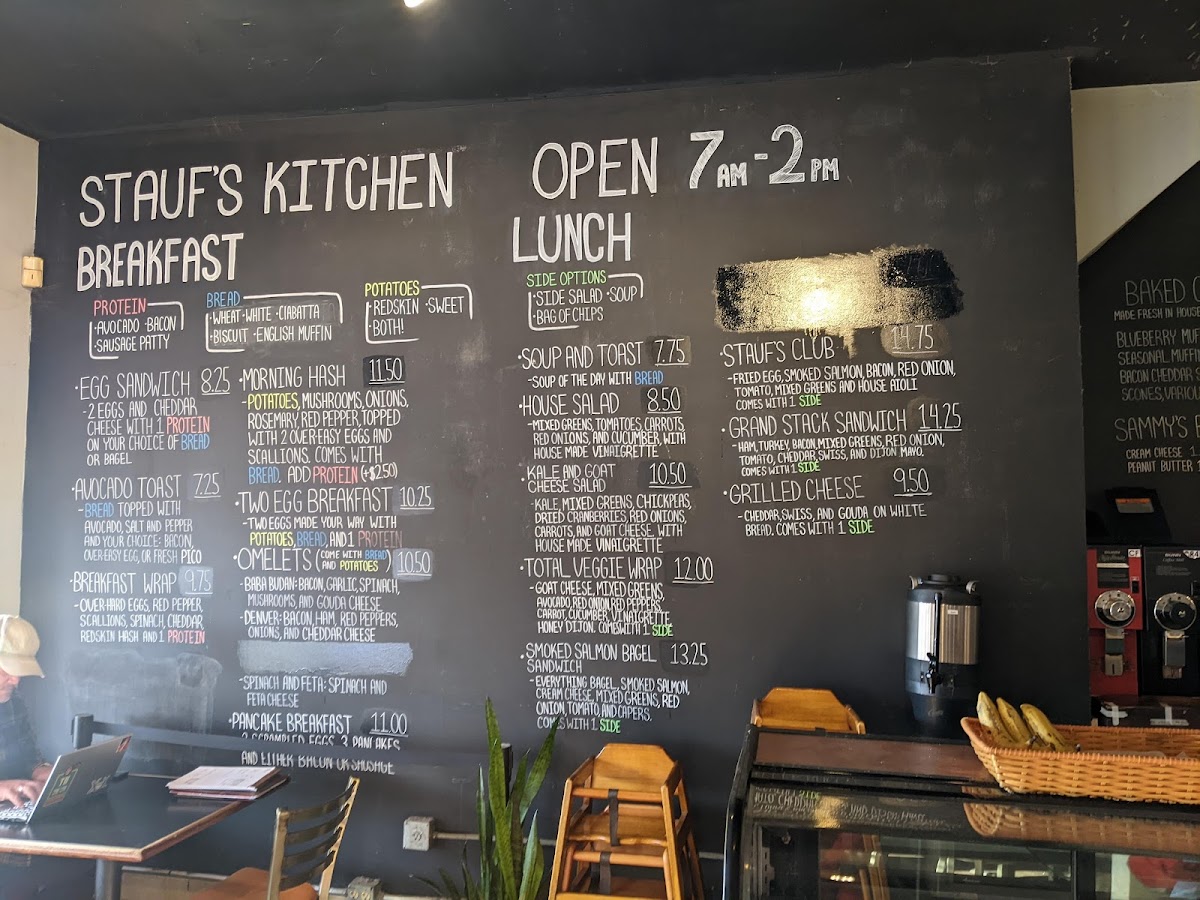 STAUF'S KITCHEN
OPEN 7AM-2PM
BREAKFAST
PROTEIN
·AVOCADO ·BACON
·SAUSAGE PATTY
BREAD
·WHEAT ·WHITE ·CIABATTA
·BISCUIT ·ENGLISH MUFFIN
POTATOES
·REDSKIN ·SWEET
·BOTH!
·EGG SANDWICH 8.25
-2 EGGS AND CHEDDAR
CHEESE WITH 1 PROTEIN
ON YOUR CHOICE OF BREAD
OR BAGEL
·AVOCADO TOAST 7.25
-BREAD TOPPED WITH
AVOCADO, SALT AND PEPPER
AND YOUR CHOICE: BACON,
OVER-EASY EGG, OR FRESH PICO
·BREAKFAST WRAP 9.75
-OVER-HARD EGGS, RED PEPPER,
SCALLIONS, SPINACH, CHEDDAR,
REDSKIN HASH AND 1 PROTEIN
·MORNING HASH 11.50
-POTATOES, MUSHROOMS, ONIONS,
ROSEMARY, RED PEPPER, TOPPED
WITH 2 OVER-EASY EGGS AND
SCALLIONS. COMES WITH
BREAD. ADD PROTEIN (+$2.50)
·TWO EGG BREAKFAST 10.25
-TWO EGGS MADE YOUR WAY WITH
POTATOES, BREAD, AND 1 PROTEIN
·OMELETS (COME WITH BREAD AND POTATOES) 10.50
-BABA BUDAN: BACON, GARLIC, SPINACH,
MUSHROOMS, AND GOUDA CHEESE
-DENVER: BACON, HAM, RED PEPPERS,
ONIONS, AND CHEDDAR CHEESE
-SPINACH AND FETA: SPINACH AND
FETA CHEESE
·PANCAKE BREAKFAST 11.00
-2 SCRAMBLED EGGS, 3 PANCAKES
AND EITHER BACON OR SAUSAGE
LUNCH
SIDE OPTIONS
·SIDE SALAD ·SOUP
·BAG OF CHIPS
·SOUP AND TOAST 7.75
-SOUP OF THE DAY WITH BREAD
·HOUSE SALAD 8.50
-MIXED GREENS, TOMATOES, CARROTS,
RED ONIONS, AND CUCUMBER, WITH
HOUSE MADE VINAIGRETTE
·KALE AND GOAT
CHEESE SALAD 10.50
-KALE, MIXED GREENS, CHICKPEAS,
DRIED CRANBERRIES, RED ONIONS,
CARROTS, AND GOAT CHEESE, WITH
HOUSE MADE VINAIGRETTE
·TOTAL VEGGIE WRAP 12.00
-GOAT CHEESE, MIXED GREENS,
AVOCADO, RED ONION, RED PEPPERS,
CARROT, CUCUMBER, VINAIGRETTE
HONEY DIJON. COMES WITH 1 SIDE
·SMOKED SALMON BAGEL
SANDWICH 13.25
-EVERYTHING BAGEL, SMOKED SALMON,
CREAM CHEESE, MIXED GREENS, RED
ONION, TOMATO, AND CAPERS.
COMES WITH 1 SIDE
·STAUF'S CLUB 14.75
-FRIED EGG, SMOKED SALMON, BACON, RED ONION,
TOMATO, MIXED GREENS AND HOUSE AIOLI
COMES WITH 1 SIDE
·GRAND STACK SANDWICH 14.25
-HAM, TURKEY, BACON, MIXED GREENS, RED ONION,
TOMATO, CHEDDAR, SWISS, AND DIJON MAYO.
COMES WITH 1 SIDE
·GRILLED CHEESE 9.50
-CHEDDAR, SWISS, AND GOUDA ON WHITE
BREAD. COMES WITH 1 SIDE
BAKED
MADE FRESH IN HOUSE
BLUEBERRY
SEASONAL
BACON CHEDDAR
SCONES,
SAMMY'S
CREAM CHEESE
PEANUT BUTTER